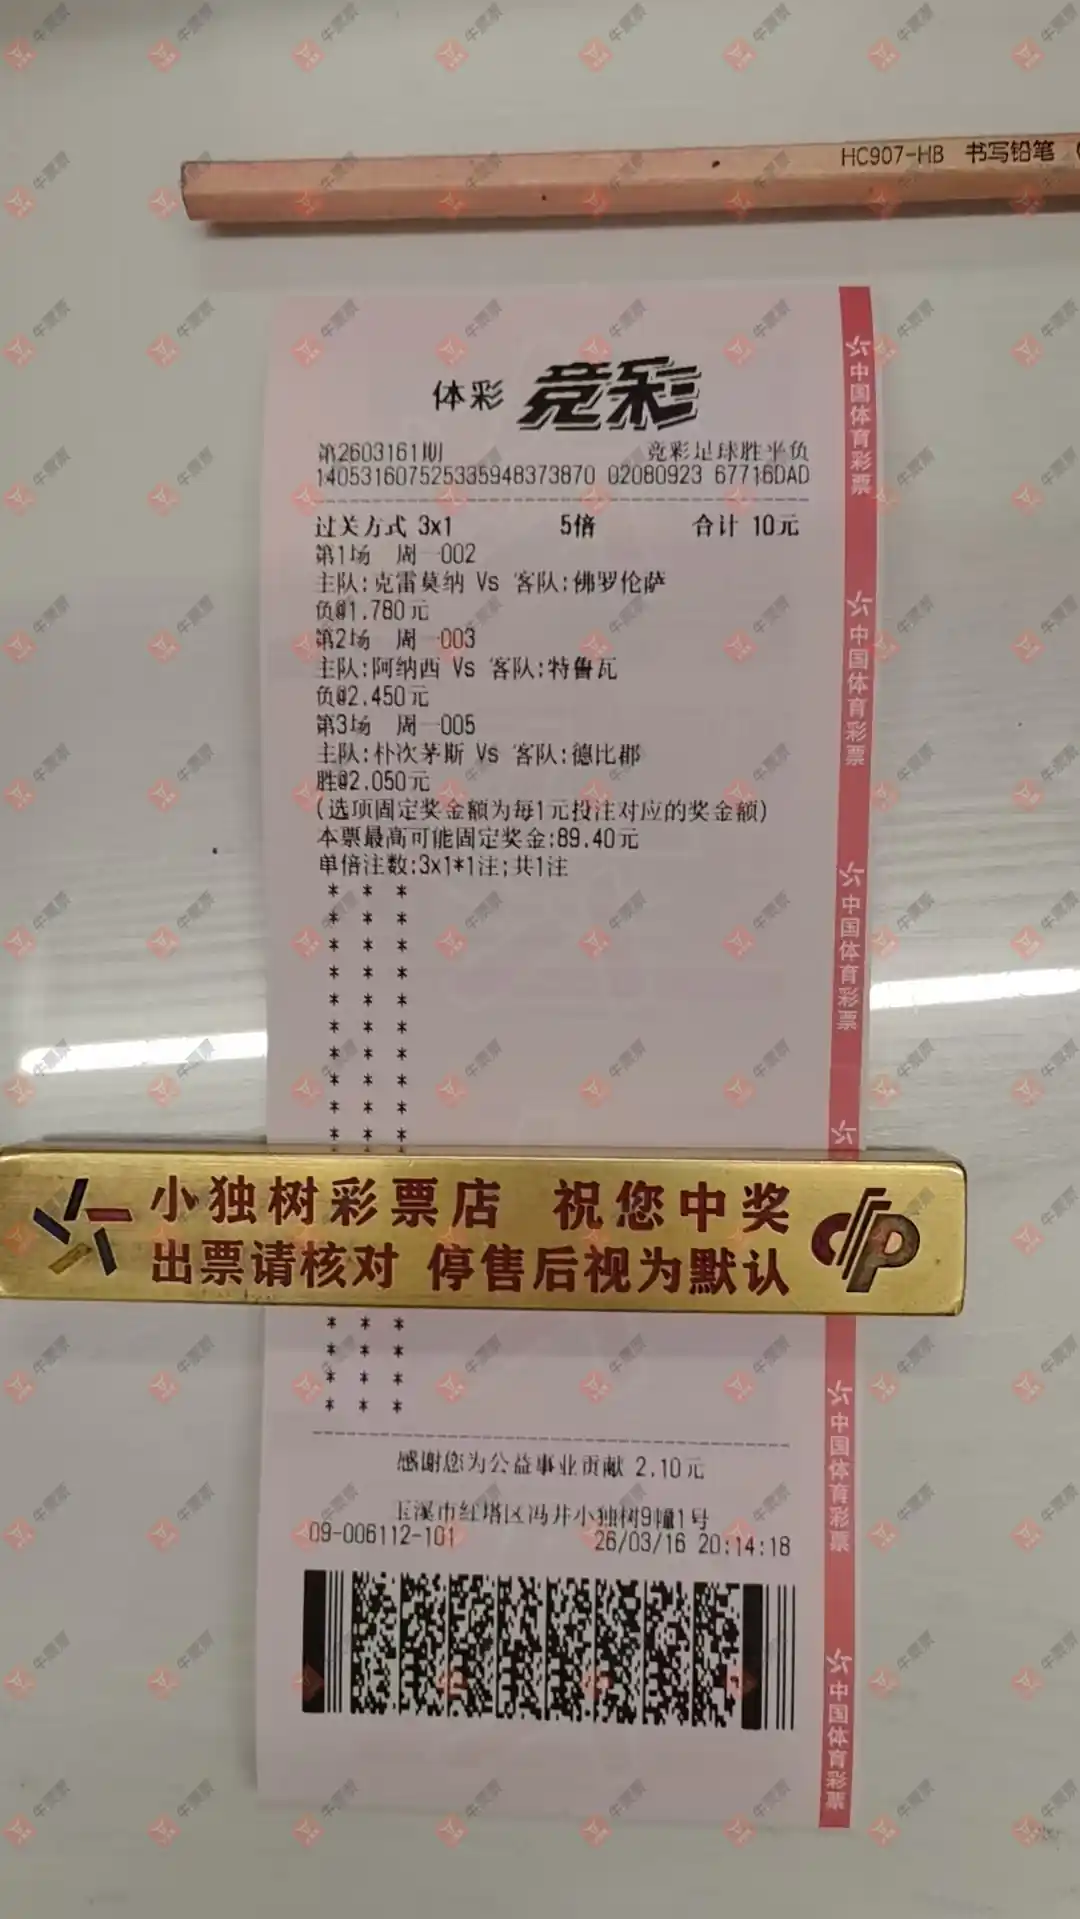 HC907-HB 书写铅笔
体彩 竞彩
第2603161期 竞彩足球胜平负
140531607525335948373870 02080923 67716DAD
过关方式 3x1 5倍 合计 10元
第1场 周一002
主队:克雷莫纳 Vs 客队:佛罗伦萨
负@1.780元
第2场 周一003
主队:阿纳西 Vs 客队:特鲁瓦
负@2.450元
第3场 周一005
主队:朴次茅斯 Vs 客队:德比郡
胜@2.050元
(选项固定奖金额为每1元投注对应的奖金额)
本票最高可能固定奖金:89.40元
单倍注数:3x1*1注;共1注
* * *
* * *
* * *
* * *
* * *
* * *
* * *
* * *
* * *
* * *
小独树彩票店 祝您中奖
出票请核对 停售后视为默认
* * *
* * *
* * *
* * *
感谢您为公益事业贡献 2.10元
玉溪市红塔区冯井小独树9幢1号
09-006112-101 26/03/16 20:14:18
中国体育彩票
中国体育彩票
中国体育彩票
中国体育彩票
中国体育彩票
牛票票